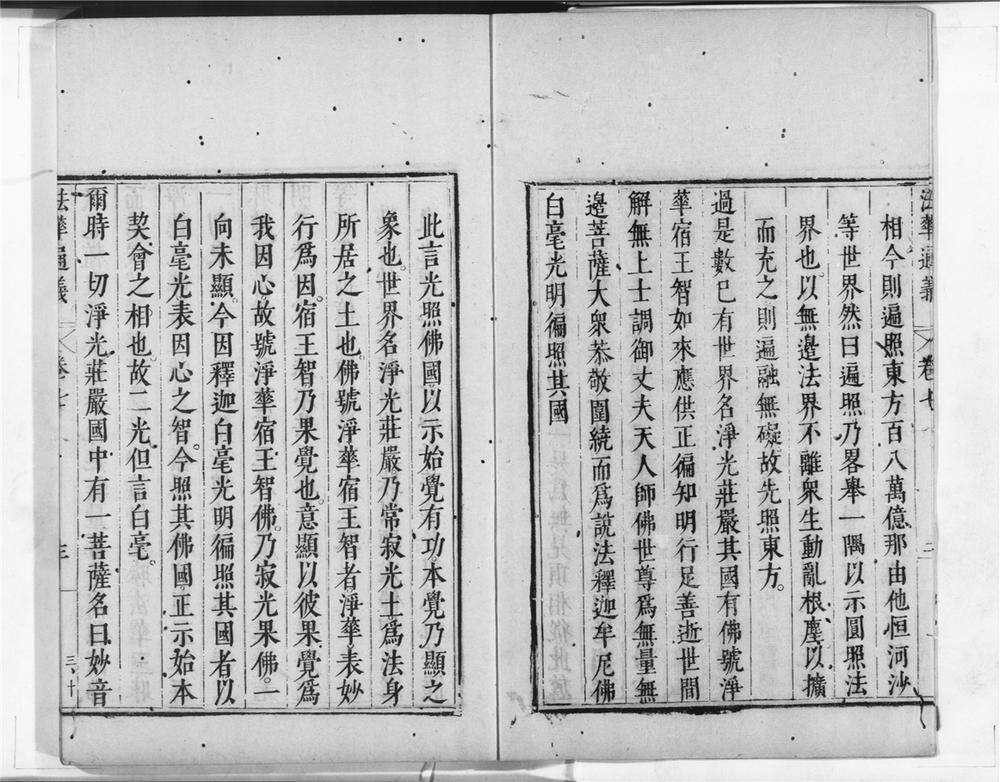 法華通義 卷七 二
相今則遍照東方百八萬億那由他恒河沙
等世界然曰遍照乃畧舉一隅以示圓照法
界也以無邊法界不離衆生動亂根塵以擴
而充之則遍融無礙故先照東方。
過是數已有世界名淨光莊嚴其國有佛號淨
華宿王智如來應供正徧知明行足善逝世間
解無上士調御丈夫天人師佛世尊爲無量無
邊菩薩大衆恭敬圍繞而爲說法釋迦牟尼佛
白毫光明徧照其國
此言光照佛國以示始覺有功本覺乃顯之
象也。世界名淨光莊嚴乃常寂光土爲法身
所居之土也。佛號淨華宿王智者淨華表妙
行爲因。宿王智乃果覺也。意顯以彼果覺爲
我因心。故號淨華宿王智佛。乃寂光果佛。一
向未顯。今因釋迦白毫光明徧照其國者以
白毫光表因心之智。今照其佛國正示始本
契會之相也。故二光但言白毫。
爾時一切淨光莊嚴國中有一菩薩名曰妙音
法華通義 卷七 三 三十